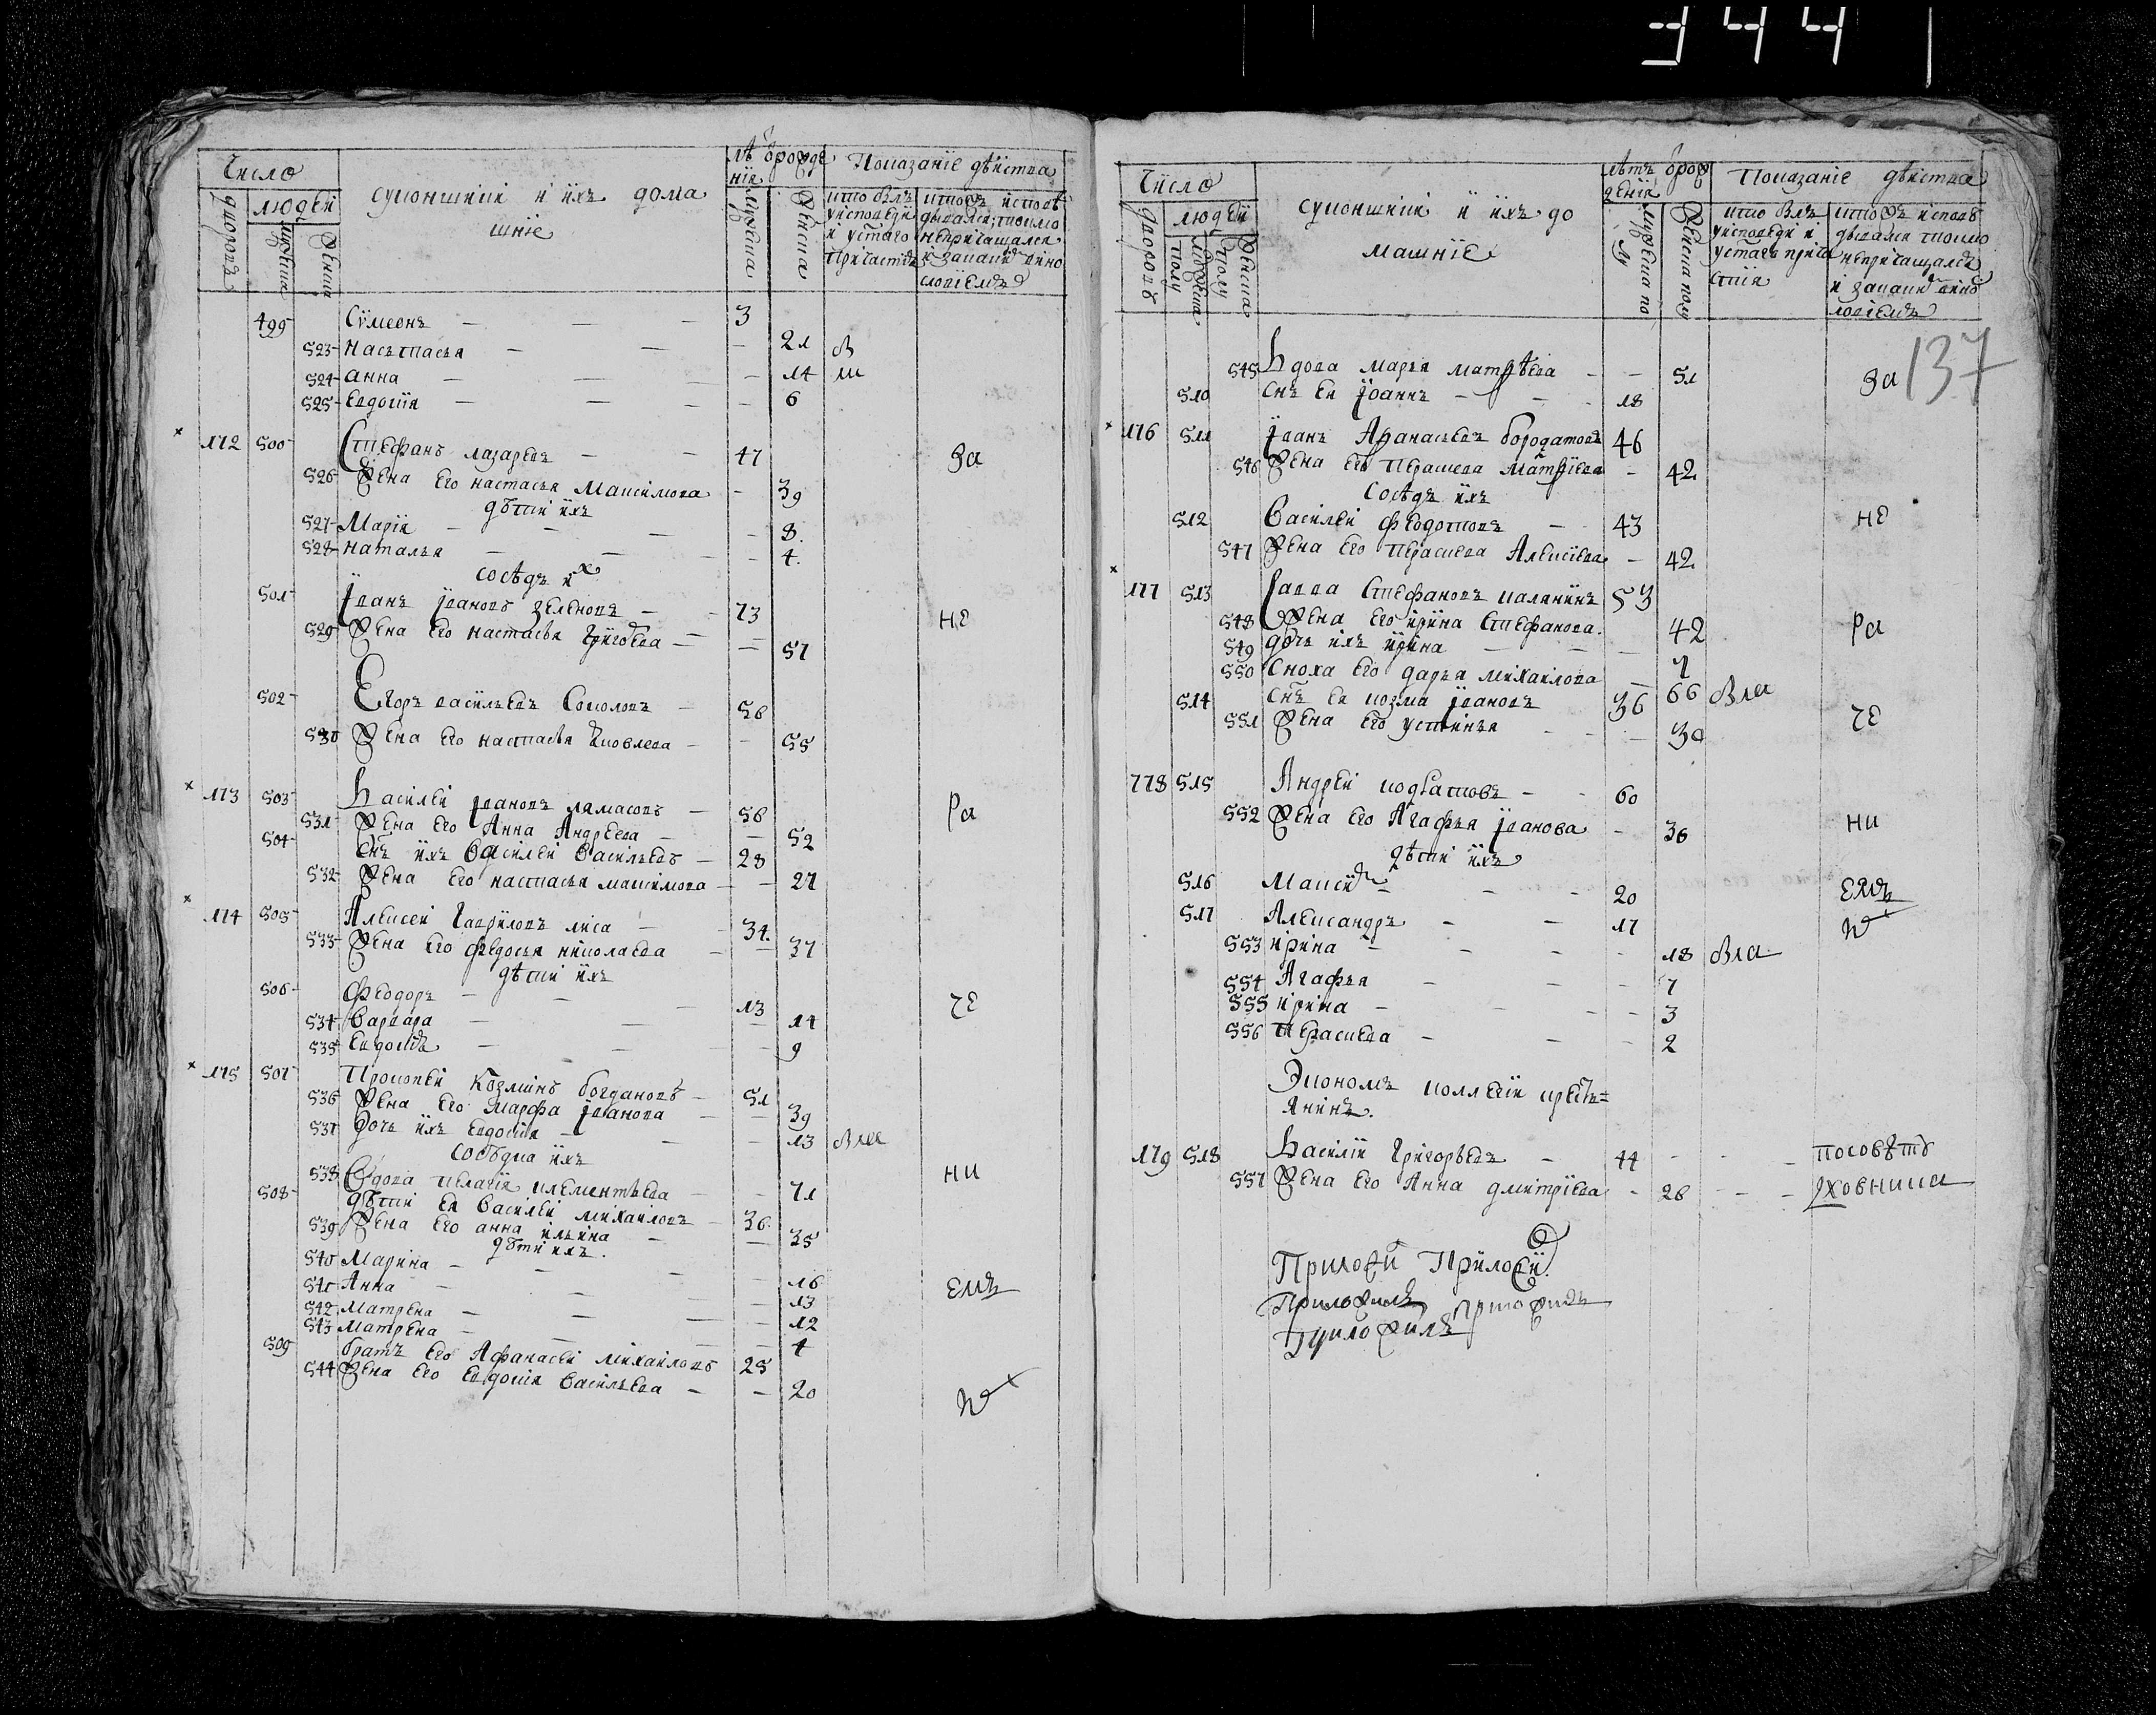 344
Число
дворовъ
людей
мужеска
женска
суконщики и ихъ дома
шніе
лѣ ѿ рожде
ніѧ
мужеска
женска
Показаніе дѣйства
кто былъ
у исповѣди
и у с҃таго
причастіѧ
кто жъ исповѣ
дывалсѧ, токмо
не причащалсѧ
и за каким вино
словіемъ
499 Сѵмеонъ — — — 3
523 Настасьѧ — — — 21 бы
524 Анна — — — 14 ли
525 Евдокіѧ — — — 6
172 500 Стефанъ лазаревъ — — 47 за
526 Жена его настасьѧ Максимова — 39
дѣти ихъ
527 Маріѧ — — — 8.
528 Натальѧ — — — 4.
сосѣдъ их
501 Іванъ Івановъ зеленовъ — — 73 не
529 Жена его настасьѧ Григоева — — 57
502 Егоръ васильевъ Соколовъ — 56
530 Жена его настасьѧ Яковлева — — 55
173 503 Василей Івановъ ламасовъ — 56 ра
531 Жена его Анна Андрѣева — — 52
504 Сн҃ъ ихъ Василей Васильевъ — 28
532 Жена его настасьѧ максимова — — 27
174 505 Алексей Гавриловъ лиса — 34.
533 Жена его Федосьѧ николаева — — 37
дѣти ихъ
506 Феодоръ — — — 13 че
534 Варвара — — — 14
535 Евдокіѧ — — — 9
175 507 Прокопей Козминъ богдановъ — 51
536 Жена его Марфа Іванова — 39
537 Дочь ихъ евдокіѧ — — — 13 были
сосѣдка ихъ
538 Вдова пелагіѧ клементьева — — 71 ни
508 дѣти еѧ Василей михаиловъ — 36.
539 Жена его анна ильина — — 35
дѣти ихъ.
540 Марина — — — 16
541 Анна — — — 13 емъ
542 Матрена — — — 12
543 Матрена — — — 4
509 братъ его Афанасей михаиловъ 25
544 Жена его евдокіѧ Васильева — — 20
Число
дворовъ
людей
мужеска
полу
женска
полу
суконщики и ихъ до
машніе
лѣтъ ѿ рож
деніѧ
мужеска по
лу
женска полу
Показаніе дѣйства
кто былъ
у исповѣди и
у с҃таго прича
стіѧ
кто жъ исповѣ
дывалсѧ токмо
не причащалсѧ
и за каким вино
словіемъ
137
545 Вдова марья матвѣева — — 51 за
510 Сн҃ъ еѧ Іоаннъ — — 18
176 511 Іванъ Афанасьевъ бородатовъ 46
546 Жена его Парасковеа Матвіева — 42
сосѣдъ ихъ
512 Василей федотовъ — 43 не
547 Жена его парасковеа Алексіева — 42
177 513 Савва Стефановъ калянинъ 53
548 Жена его ірина Стефанова. 42 ра
549 дочь ихъ ірина — — — 7
550 Сноха его дарьѧ михаилова — 66 была
514 Сн҃ъ еѧ козма Івановъ 36
551 Жена его устинья — — — 30 че
178 515 Андрей — — 60
552 Жена его Агафьѧ Іванова — 36 ни
дѣти ихъ
516 Максим — — 20 емъ
517 Александръ — — 17
553 ирина — — — 18 была
554 Агафьѧ — — — 7
555 ирина — — — 3
556 парасковеа — — — 2
Эконом коллегіи кресть=
янинъ.
179 518 Василій Григорьевъ — 44 — — — по совѣту
557 Жена его Анна дмитріева — 26 — — — дховника